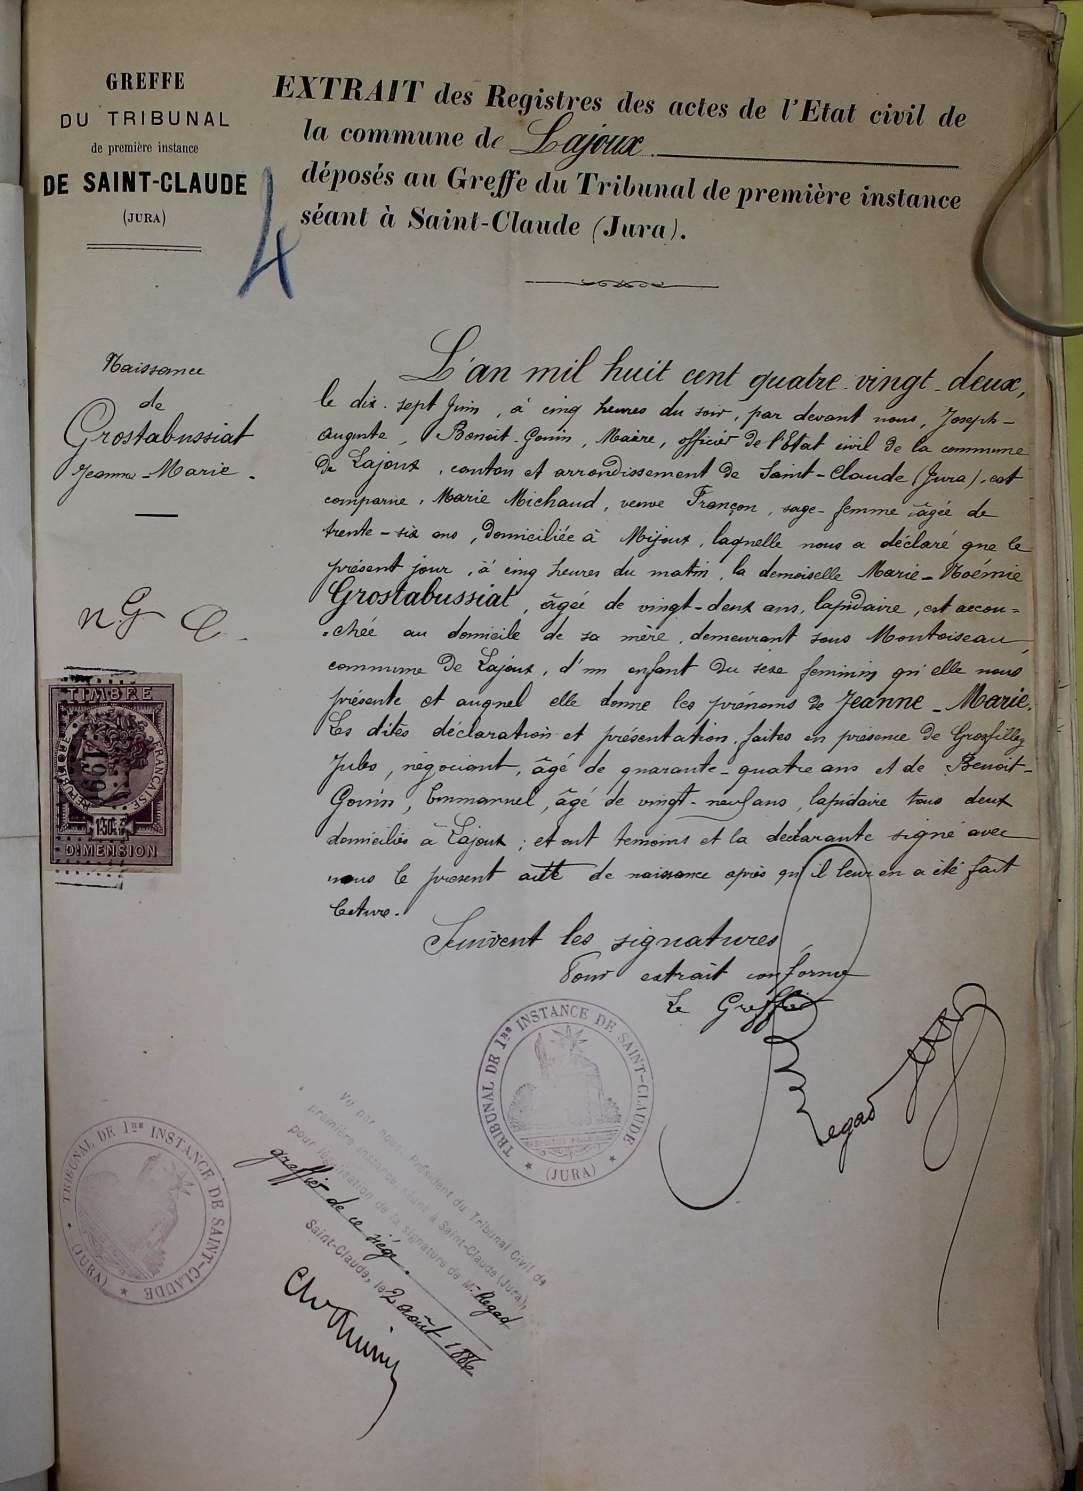 GREFFE
DU TRIBUNAL
de première instance
DE SAINT-CLAUDE
(JURA)
4
EXTRAIT des Registres des actes de l'Etat civil de
la commune de Lajoux
déposés au Greffe du Tribunal de première instance
séant à Saint-Claude (Jura).
Naissance
de
Grostabussiat
Jeanne-Marie.
L'an mil huit cent quatre-vingt-deux,
le dix-sept Juin, à cinq heures du soir, par devant nous, Joseph-
Auguste, Benoit-Gonin, Maire, officier de l'Etat civil de la commune
de Lajoux, canton et arrondissement de Saint-Claude (Jura), est
comparue, Marie Michaud, veuve Françon, sage-femme, âgée de
trente-six ans, domiciliée à Mijoux, laquelle nous a déclaré que le
présent jour, à cinq heures du matin, la demoiselle Marie-Noémie
Grostabussiat, âgée de vingt-deux ans, lapidaire, est accou-
chée au domicile de sa mère, demeurant sous Montoiseau,
commune de Lajoux, d'un enfant du sexe feminin qu'elle nous
présente et auquel elle donne les prénoms de Jeanne-Marie.
Les dites déclaration et présentation faites en présence de Grosfilley
Jules, négociant, âgé de quarante-quatre ans et de Benoit-
Gonin, Emmanuel, âgé de vingt-neuf ans, lapidaire tous deux
domiciliés à Lajoux; et ont temoins et la déclarante signé avec
nous le present acte de naissance après qu'il leur en a été fait
lecture.
Suivent les signatures
Pour extrait conforme
Le Greffier
Regad
TIMBRE
REPUBLIQUE FRANÇAISE
1F50C
DIMENSION
TRIBUNAL DE 1RE INSTANCE DE SAINT-CLAUDE
(JURA)
TRIBUNAL DE 1RE INSTANCE DE SAINT-CLAUDE
(JURA)
Vu par nous, Président du Tribunal Civil de
première instance, séant à Saint-Claude (Jura),
pour légalisation de la signature de Mr Regad
greffier de ce siége.
Saint-Claude, le 2 août 1886